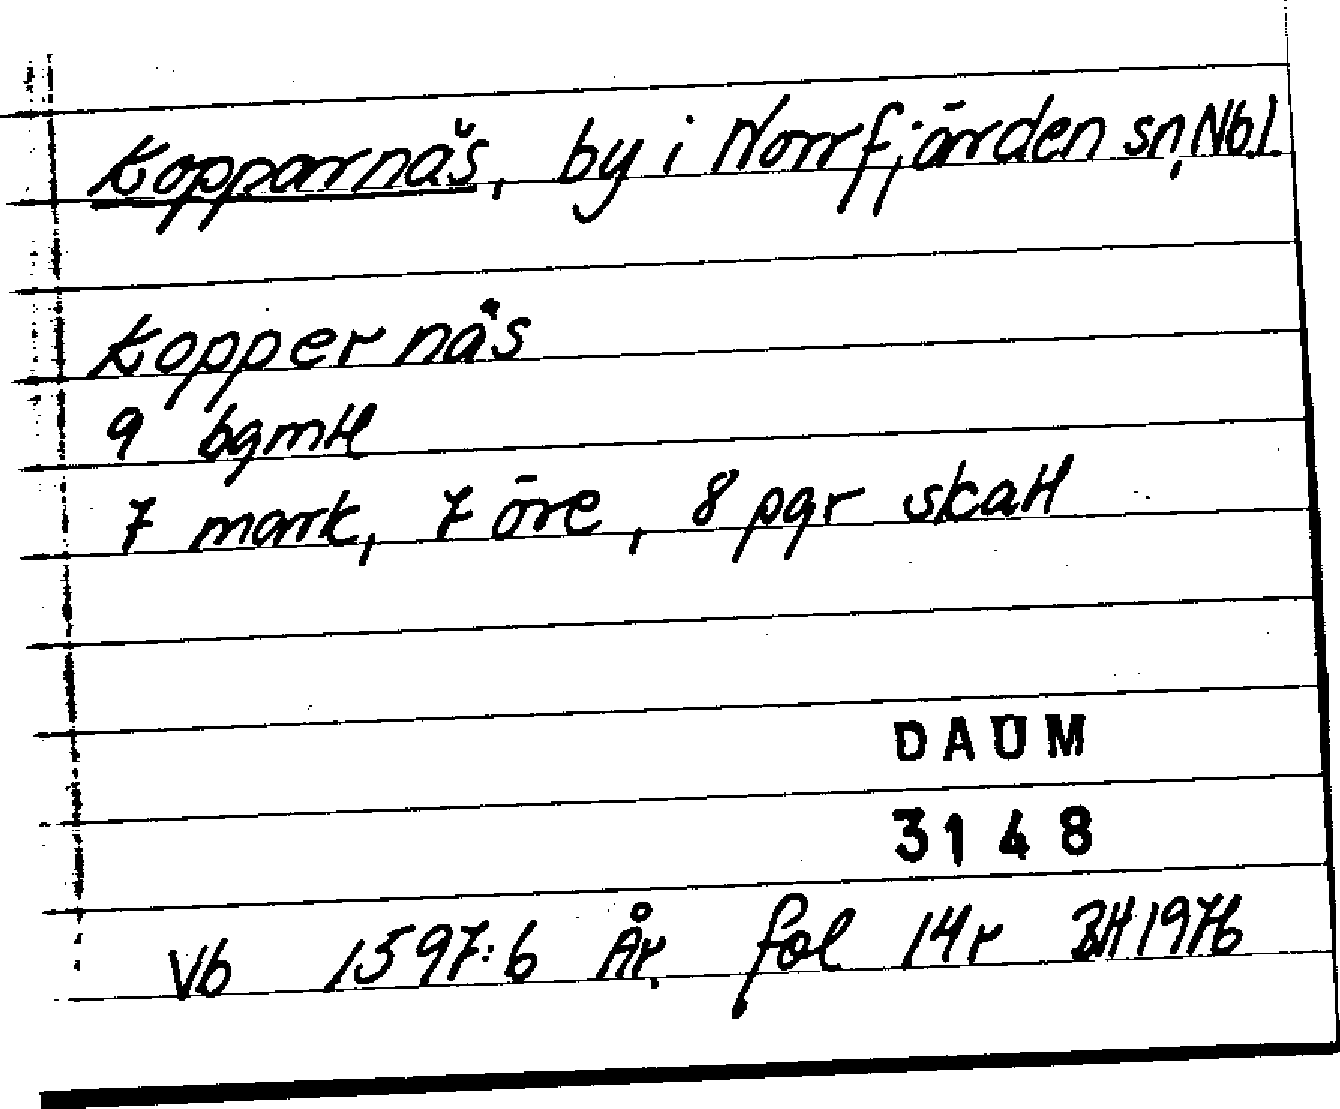 Kopparnäs, by i Norrfjärden sn, Nb.l.
Koppernäs
9 bgmtl
7 mark, 7 öre, 8 pgr skatt
DAUM
3148
Vb 1597:6 År. fol 14r BH 1976